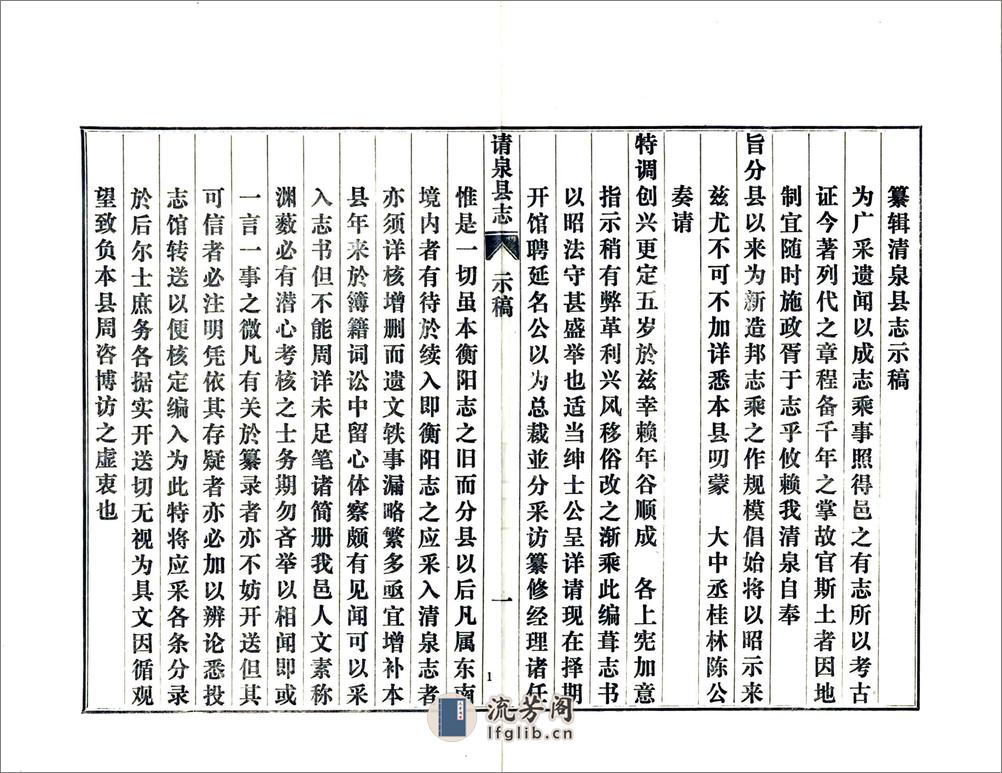 纂辑清泉县志示稿
为广采遗闻以成志乘事照得邑之有志所以考古
证今著列代之章程备千年之掌故官斯土者因地
制宜随时施政胥于志乎攸赖我清泉自奉
旨分县以来为新造邦志乘之作规模倡始将以昭示来
兹尤不可不加详悉本县叨蒙 大中丞桂林陈公
奏请
特调创兴更定五岁於兹幸赖年谷顺成 各上宪加意
指示稍有弊革利兴风移俗改之渐乘此编葺志书
以昭法守甚盛举也适当绅士公呈详请现在择期
开馆聘延名公以为总裁並分采访纂修经理诸任
请泉县志 示稿 一 1
惟是一切虽本衡阳志之旧而分县以后凡属东南
境内者有待於续入即衡阳志之应采入清泉志者
亦须详核增删而遗文轶事漏略繁多亟宜增补本
县年来於簿籍词讼中留心体察颇有见闻可以采
入志书但不能周详未足笔诸简册我邑人文素称
渊薮必有潜心考核之士务期勿吝举以相闻即或
一言一事之微凡有关於纂录者亦不妨开送但其
可信者必注明凭依其存疑者亦必加以辨论悉投
志馆转送以便核定编入为此特将应采各条分录
於后尔士庶务各据实开送切无视为具文因循观
望致负本县周咨博访之虚衷也
流芳阁
lfglib.cn